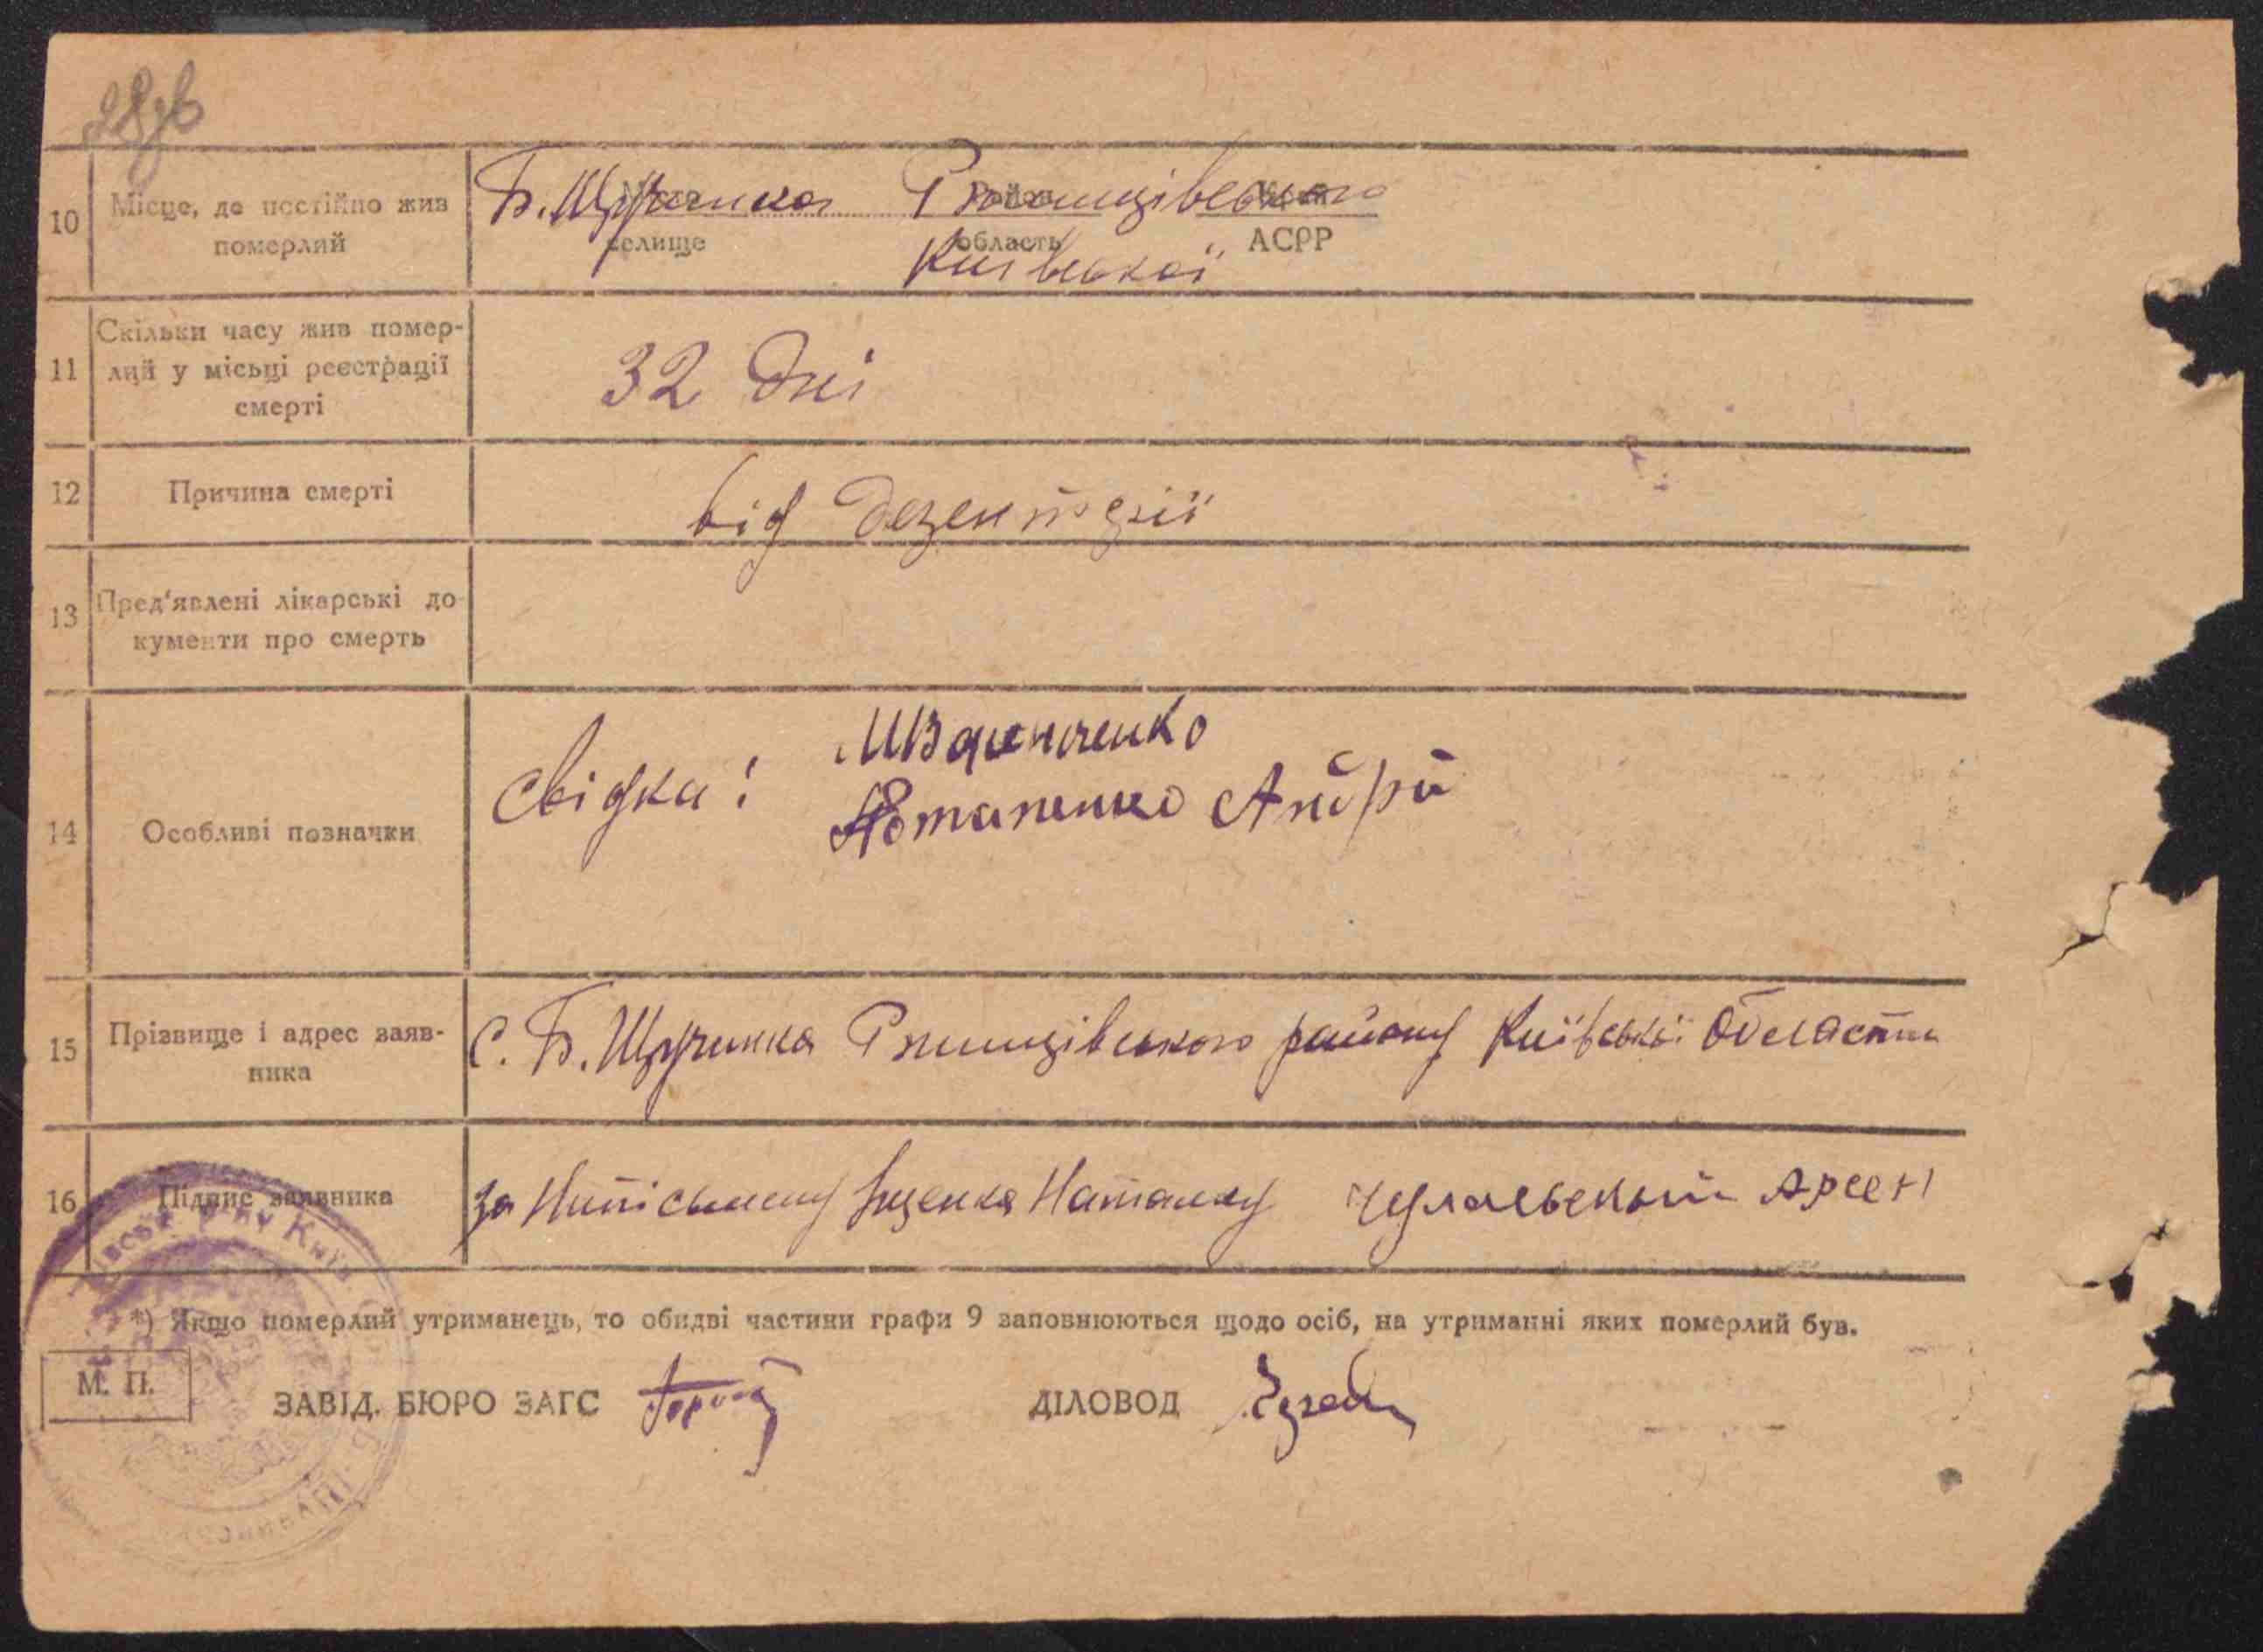 28зв
10 Місце, де постійно жив померлий
Місто Район Край
селище область АСРР
Б. Щучинка Ржищівського
Київської
11 Скільки часу жив помер-
лий у місьці реєстрації
смерті
32 дні
12 Причина смерті
від дезентерії
13 Пред'явлені лікарські до-
кументи про смерть
14 Особливі позначки
свідка:
Потапенко Андрій
15 Прізвище і адрес заяв-
ника
с. Б. Щучинка Ржищівського району Київської області
16 Підпис заявника
за Нипісьмену Яценка Наталку Арсен
*) Якщо померлий утриманець, то обидві частини графи 9 заповнюються щодо осіб, на утриманні яких померлий був.
М. П.
ЗАВІД. БЮРО ЗАГС
ДІЛОВОД